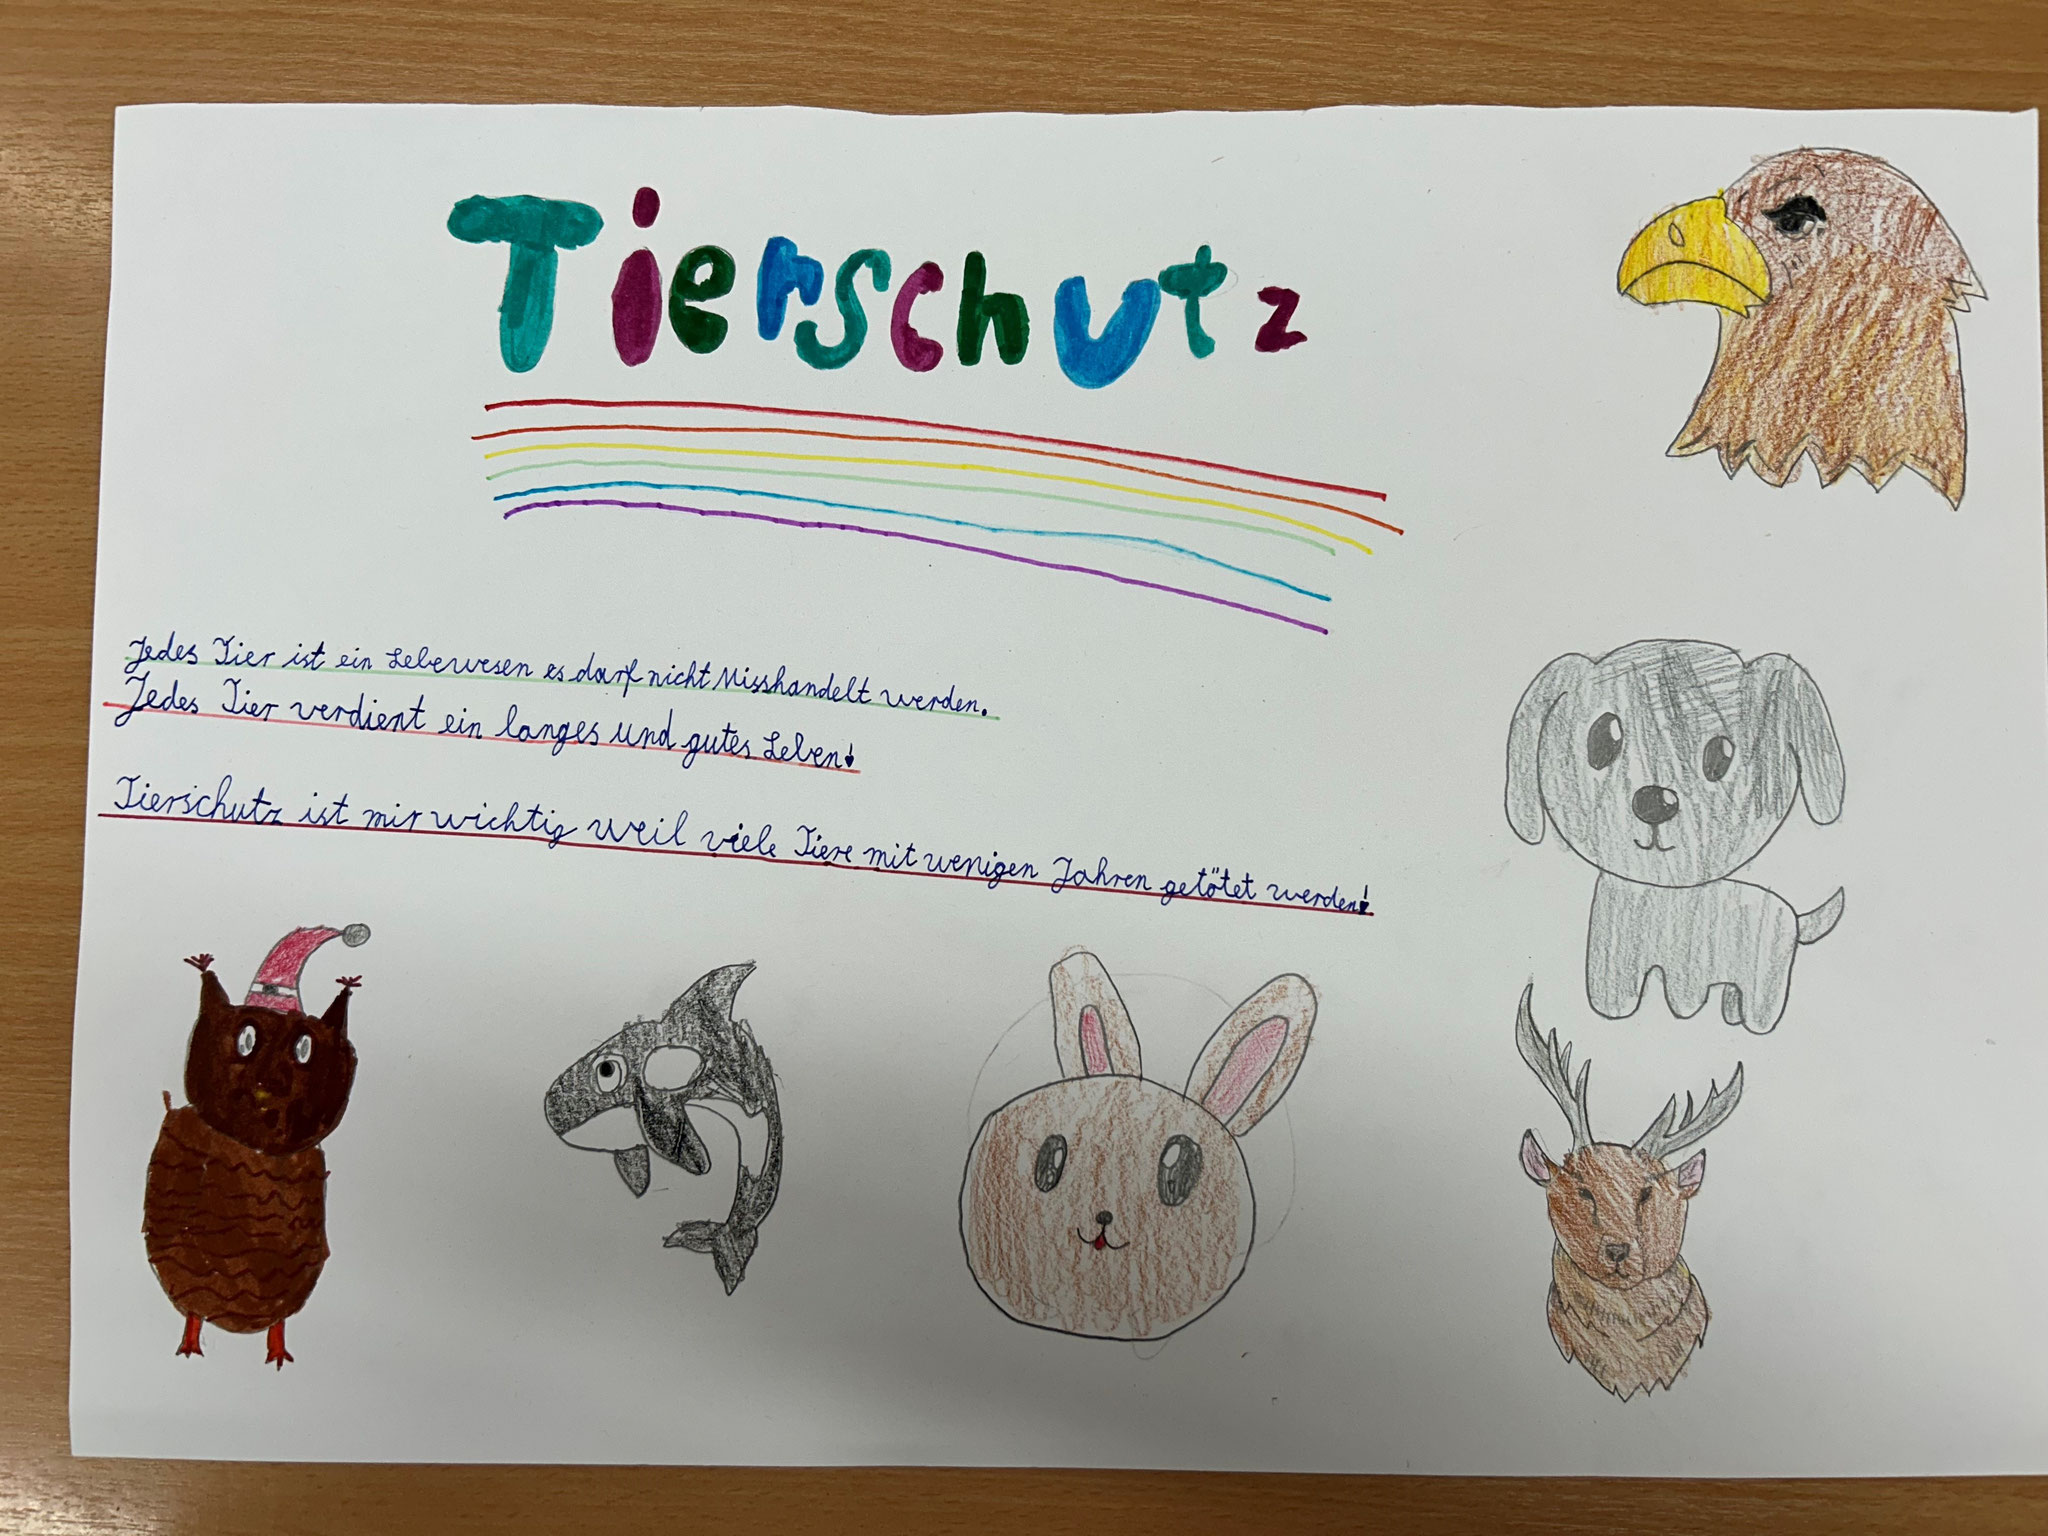 Tierschutz
Jedes Tier ist ein Lebewesen es darf nicht Misshandelt werden.
Jedes Tier verdient ein langes und gutes Leben!
Tierschutz ist mir wichtig weil viele Tiere mit wenigen Jahren getötet werden!